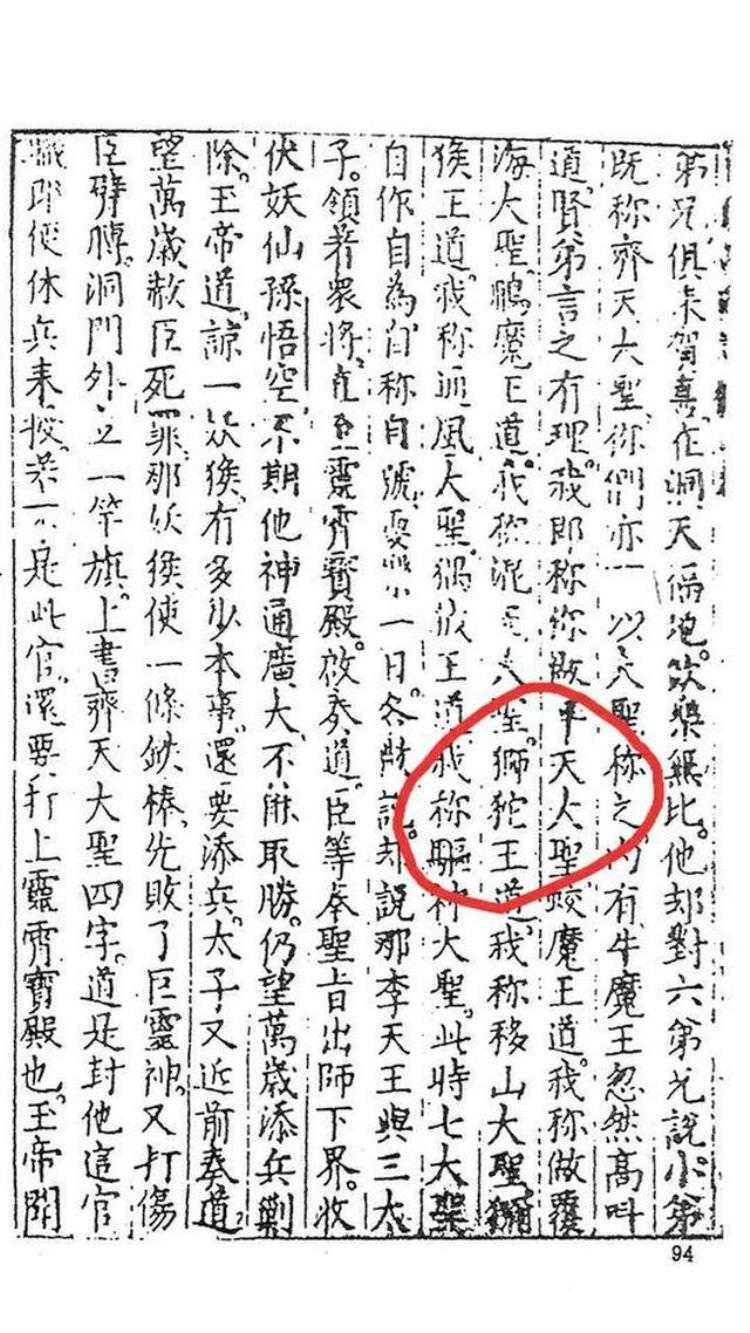 弟兄俱来賀喜。在洞天福地。飲樂無比。他却對六弟兄說。小弟
既称齊天大聖。你們亦以大聖称之。内有牛魔王忽然高叫
道。賢弟言之有理。我即称你做平天大聖。蛟魔王道。我称做覆
海大聖。鵬魔王道。我称混天大聖。獅狔王道。我称移山大聖。獼
猴王道。我称通風大聖。狨王道。我称驅神大聖。此時七大聖
自作自為。自称自號。耍一日。各散訖。却說那李天王與三太
子。領着衆將。直至靈霄寳殿。啟奏道。臣等奉聖旨出師下界。收
伏妖仙孫悟空。不期他神通廣大。不能取勝。仍望萬歲添兵剿
除。玉帝道。諒一妖猴。有多少本事。還要添兵。太子又近前奏道。
望萬歲赦臣死罪。那妖猴使一條鉄棒。先敗了巨靈神。又打傷
臣臂膊。洞門外立一竿旗。上書齊天大聖四字。道是封他這官
職。即便休兵来投。若不是此官。還要打上靈霄寶殿也。玉帝聞
94